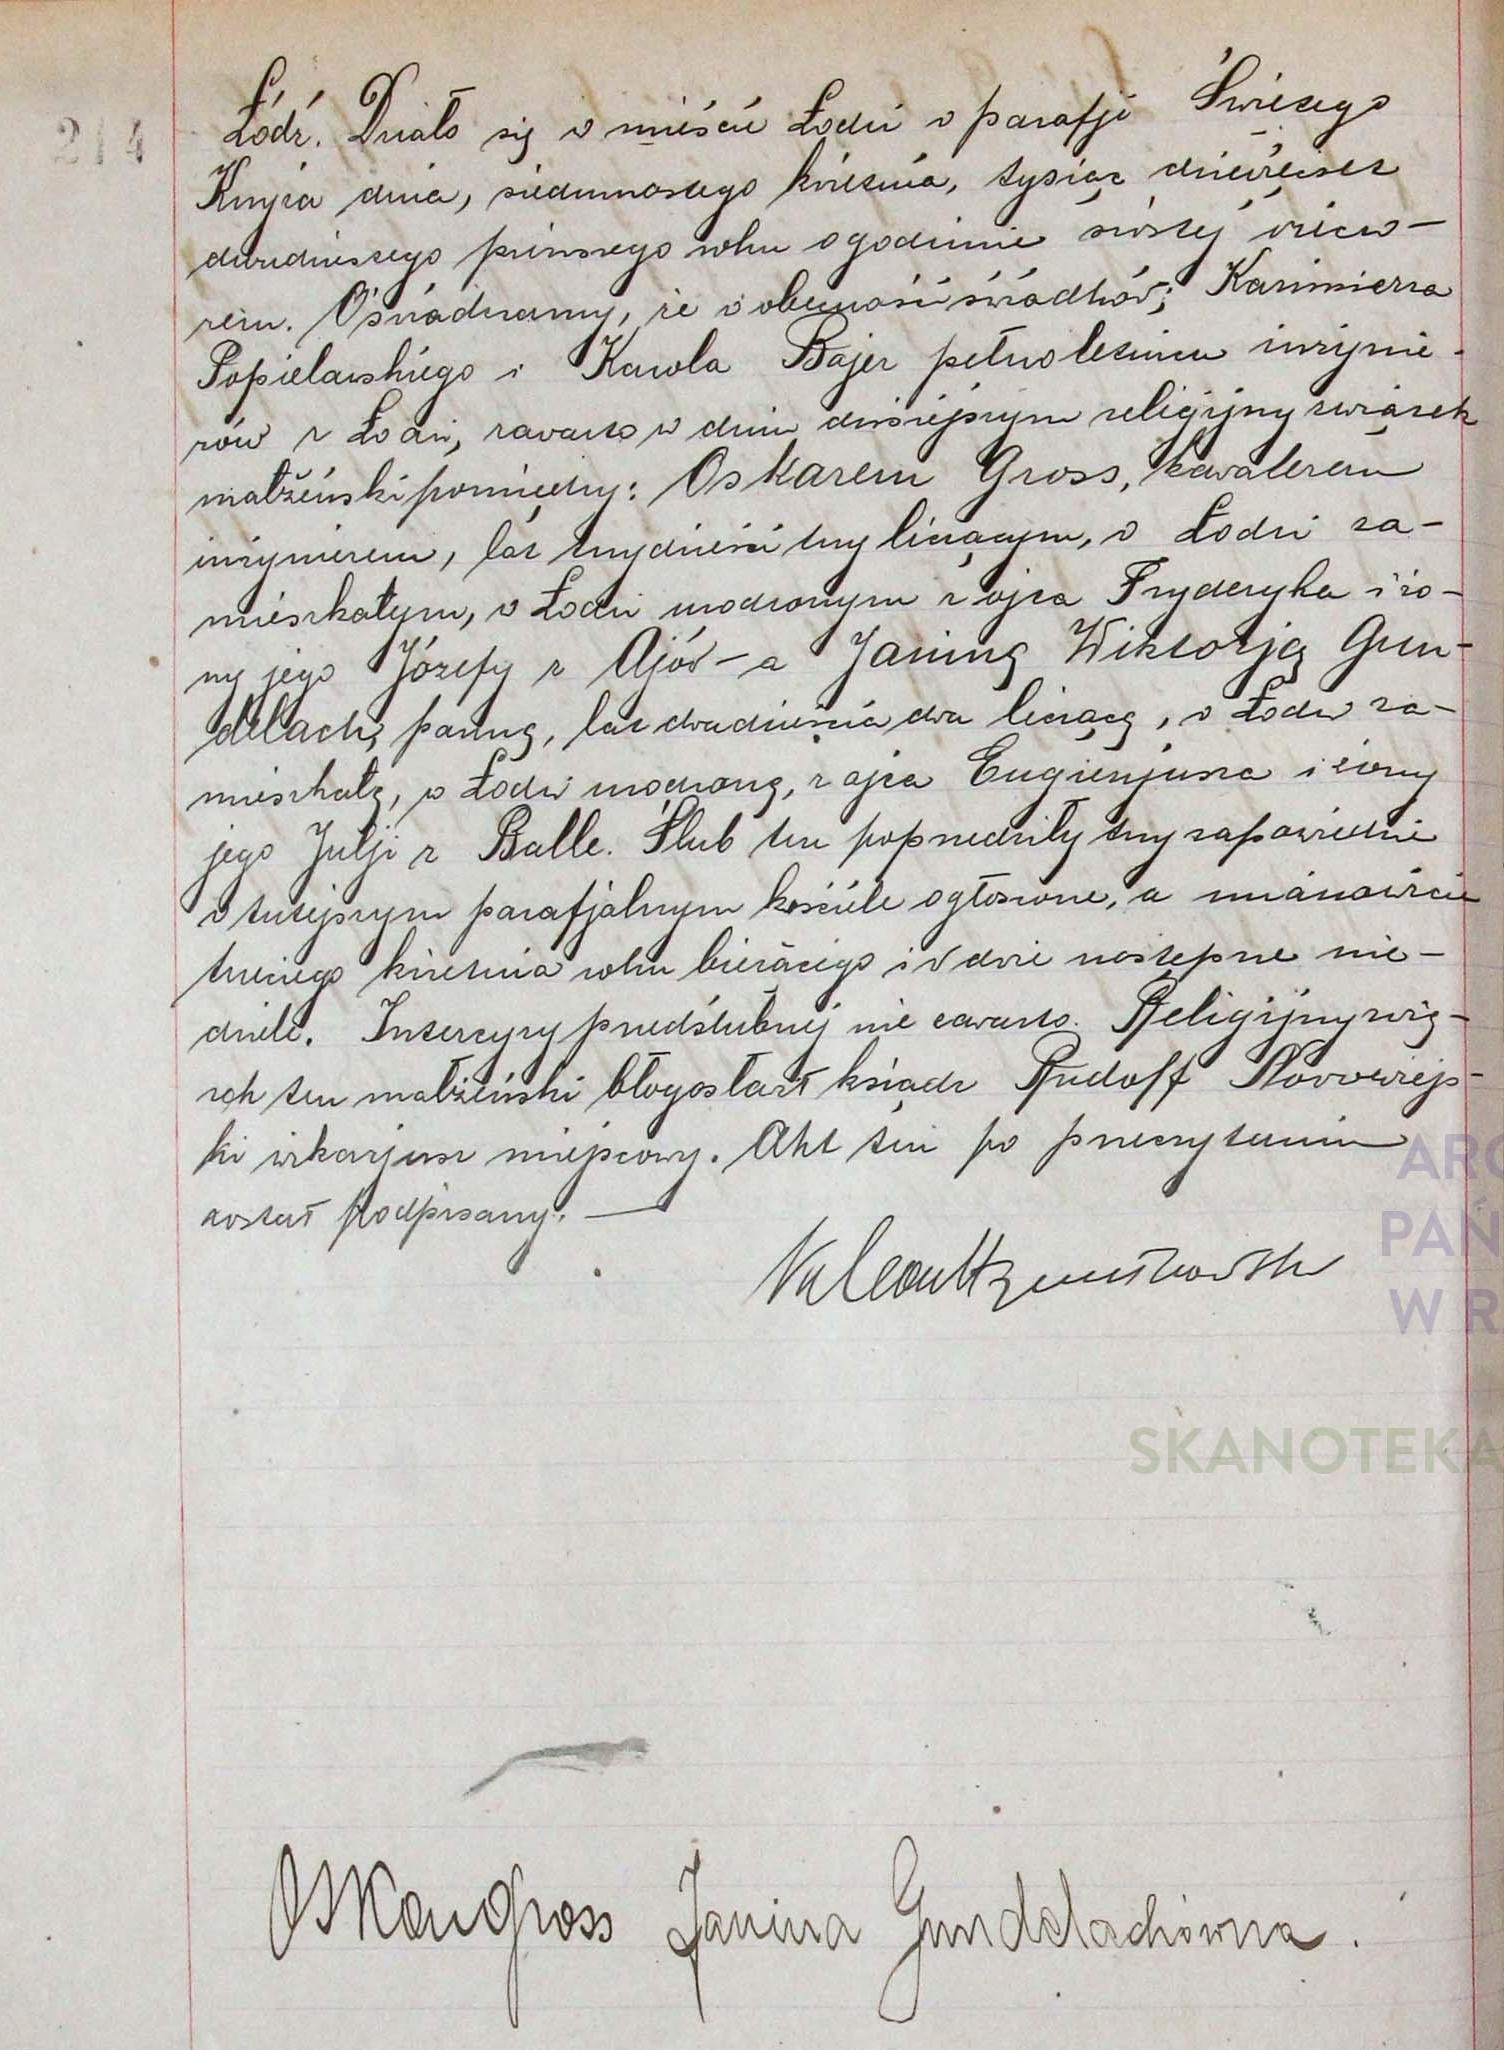 Łódź. Działo się w mieście Łodzi w parafji Świętego
Krzyża dnia, siedemnastego kwietnia, tysiąc dziewięćset
dwudziestego pierwszego roku o godzinie szóstej wieczo-
rem. Oświadczamy, że w obecności świadków; Kazimierza
Popielarskiego i Karola Bajer pełnoletnich inżynie-
rów z Łodzi, zawarto w dniu dzisiejszym religijny związek
małżeński pomiędzy: Oskarem Gross, kawalerem
inżynierem, lat trzydzieści trzy liczącym, w Łodzi za-
mieszkałym, w Łodzi urodzonym z ojca Fryderyka i żo-
ny jego Józefy z Ajów – a Janiną Wiktorją Gun-
delach, panną, lat dwadzieścia dwa liczącą, w Łodzi za-
mieszkałą, w Łodzi urodzoną, z ojca Eugienjusza i żony
jego Julji z Balle. Ślub ten poprzedziły trzy zapowiedzie
w tutejszym parafjalnym kościele ogłoszone, a mianowicie
trzeciego kwietnia roku bieżącego i w dwie następne nie-
dziele. Intercyzy przedślubnej nie zawarto. Religijny zwią-
zek ten małżeński błogosławił ksiądz Rudolf Nowowiejs-
ki wikarjusz miejscowy. Akt ten po przeczytaniu
został podpisany. —
Oskar Gross Janina Gundelachówna.
ARC
PAŃ
W R
SKANOTEKA